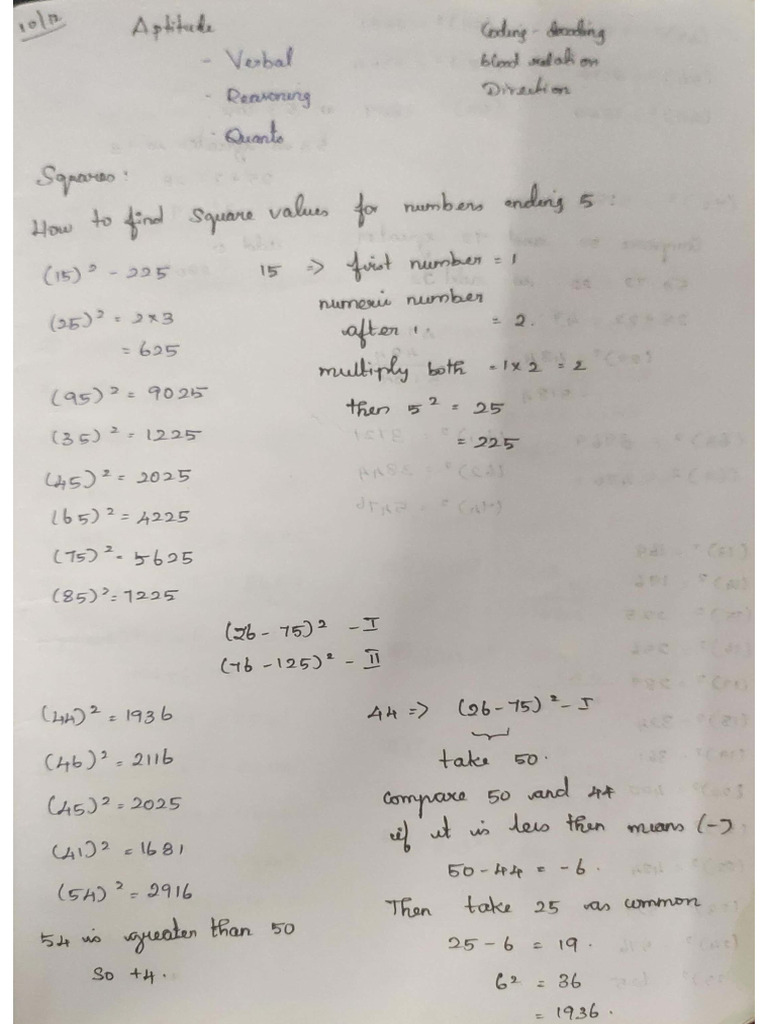 10/12
Aptitude
- Verbal
- Reasoning
- Quants
Coding - decoding
blood relation
Direction
Squares:
How to find Square values for numbers ending 5:
(15)² - 225
(25)² = 2×3
= 625
(95)² = 9025
(35)² = 1225
(45)² = 2025
(65)² = 4225
(75)² - 5625
(85)² = 7225
15 => first number = 1
numeric number
after 1. = 2.
multiply both = 1×2 = 2
then 5² = 25
= 225
(26 - 75)² - I
(76 - 125)² - II
(44)² = 1936
(46)² = 2116
(45)² = 2025
(41)² = 1681
(54)² = 2916
54 is greater than 50
So +4.
44 => (26-75)² - I
take 50.
compare 50 and 44
if it is less then means (-)
50 - 44 = -6.
Then take 25 as common
25 - 6 = 19.
6² = 36
= 1936.